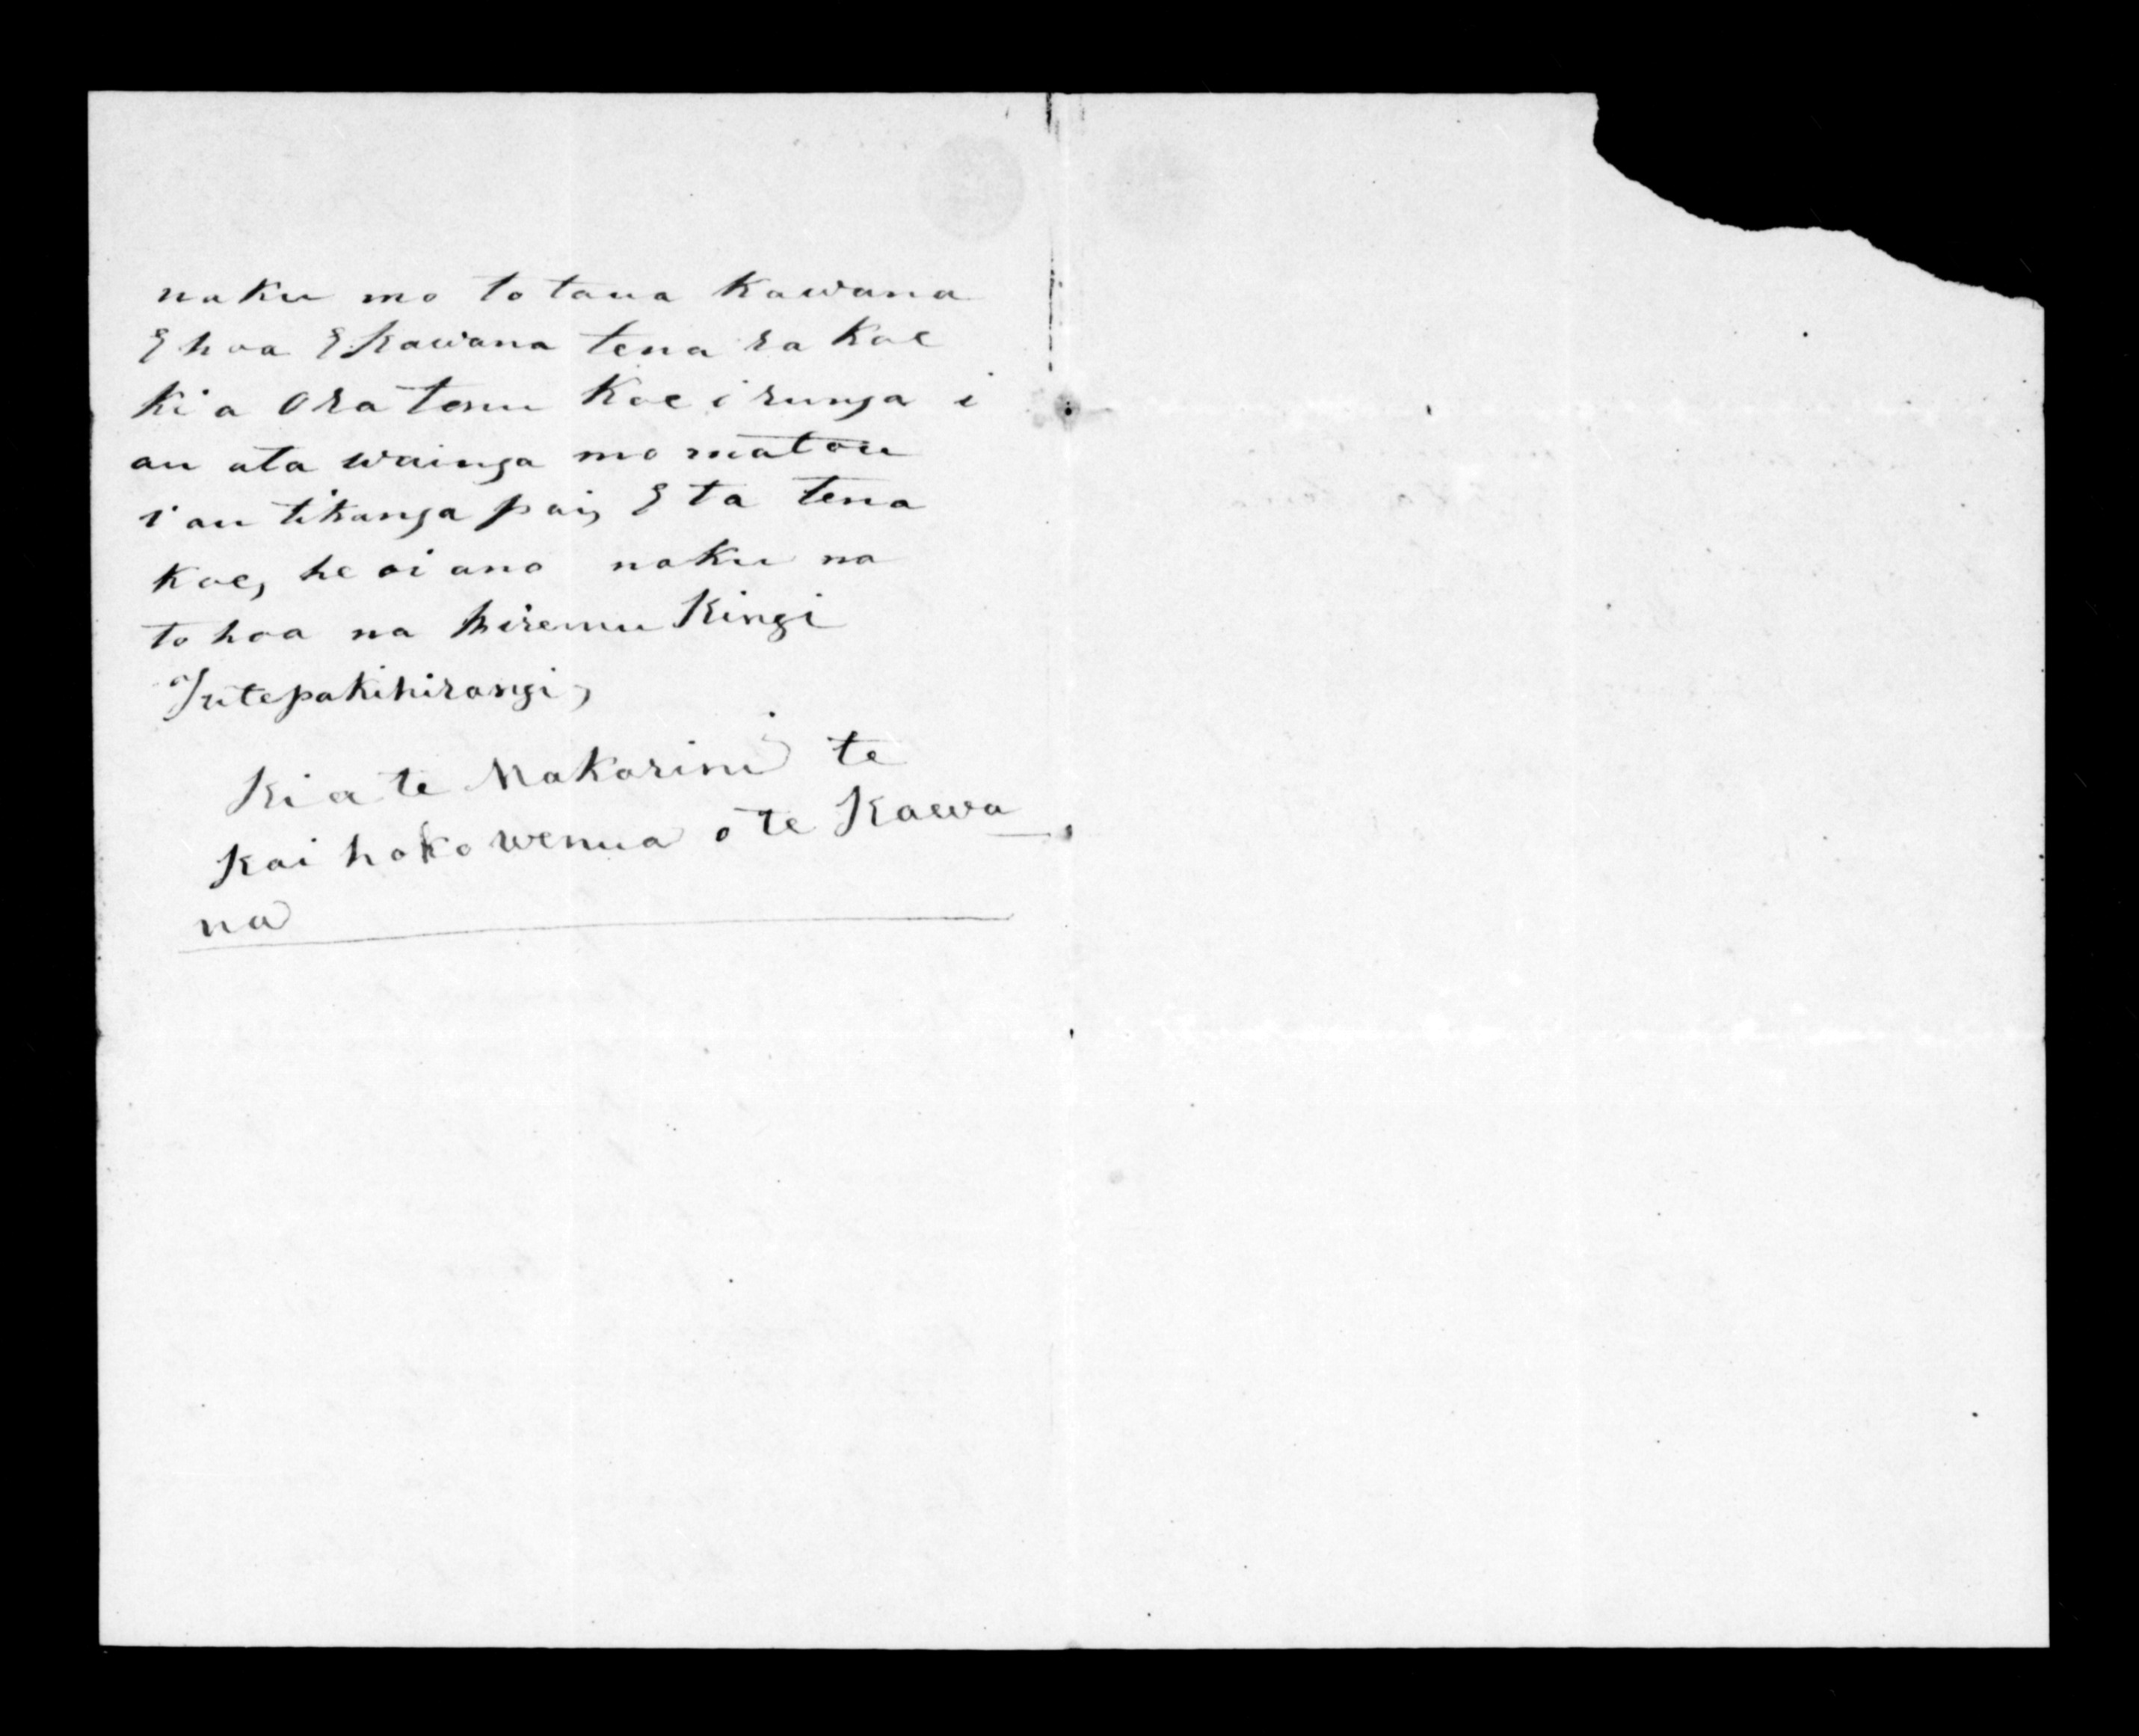 naku mo to taua Kawana
E hoa E Kawana tena ra Koe
Kia Ora tonu Koe i runga i
au ata wainga mo matou
i au tikanga pai, E ta tena
Koe, he oi ano naku na
to hoa na Wiremu Kingi
Tutepakihirangi,
Ki a te Makarini te
Kai hoko wenua o te Kawa
na